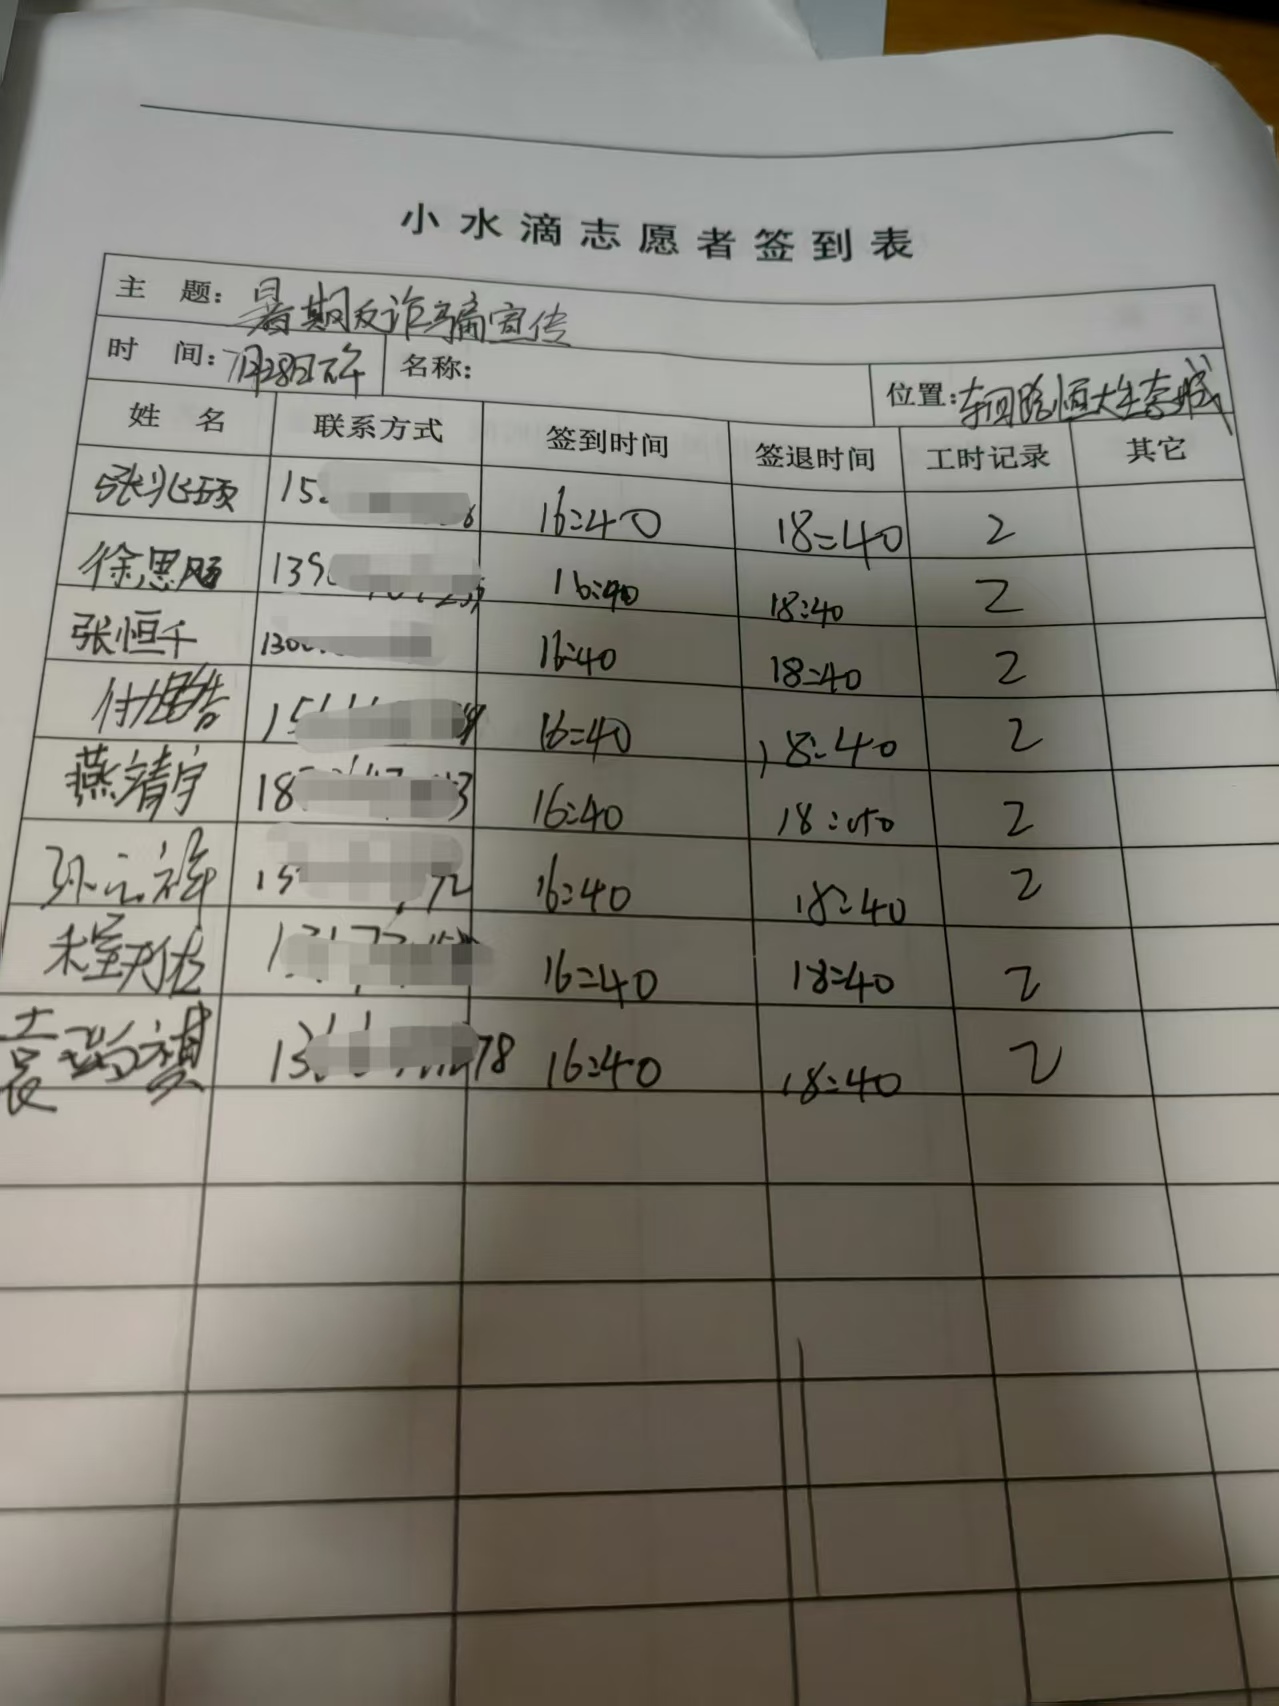 小水滴志愿者签到表
主 题：暑期反诈骗宣传
时 间：7月28日下午 名称： 位置：恒大生态城
姓 名 联系方式 签到时间 签退时间 工时记录 其它
张兆硕 15 6 16:40 18:40 2
徐思 139 16:40 18:40 2
张恒千 130 16:40 18:40 2
付 15 16:40 18:40 2
燕靖宇 18 3 16:40 18:40 2
孙 祥 15 72 16:40 18:40 2
16:40 18:40 2
袁 祺 13 78 16:40 18:40 2